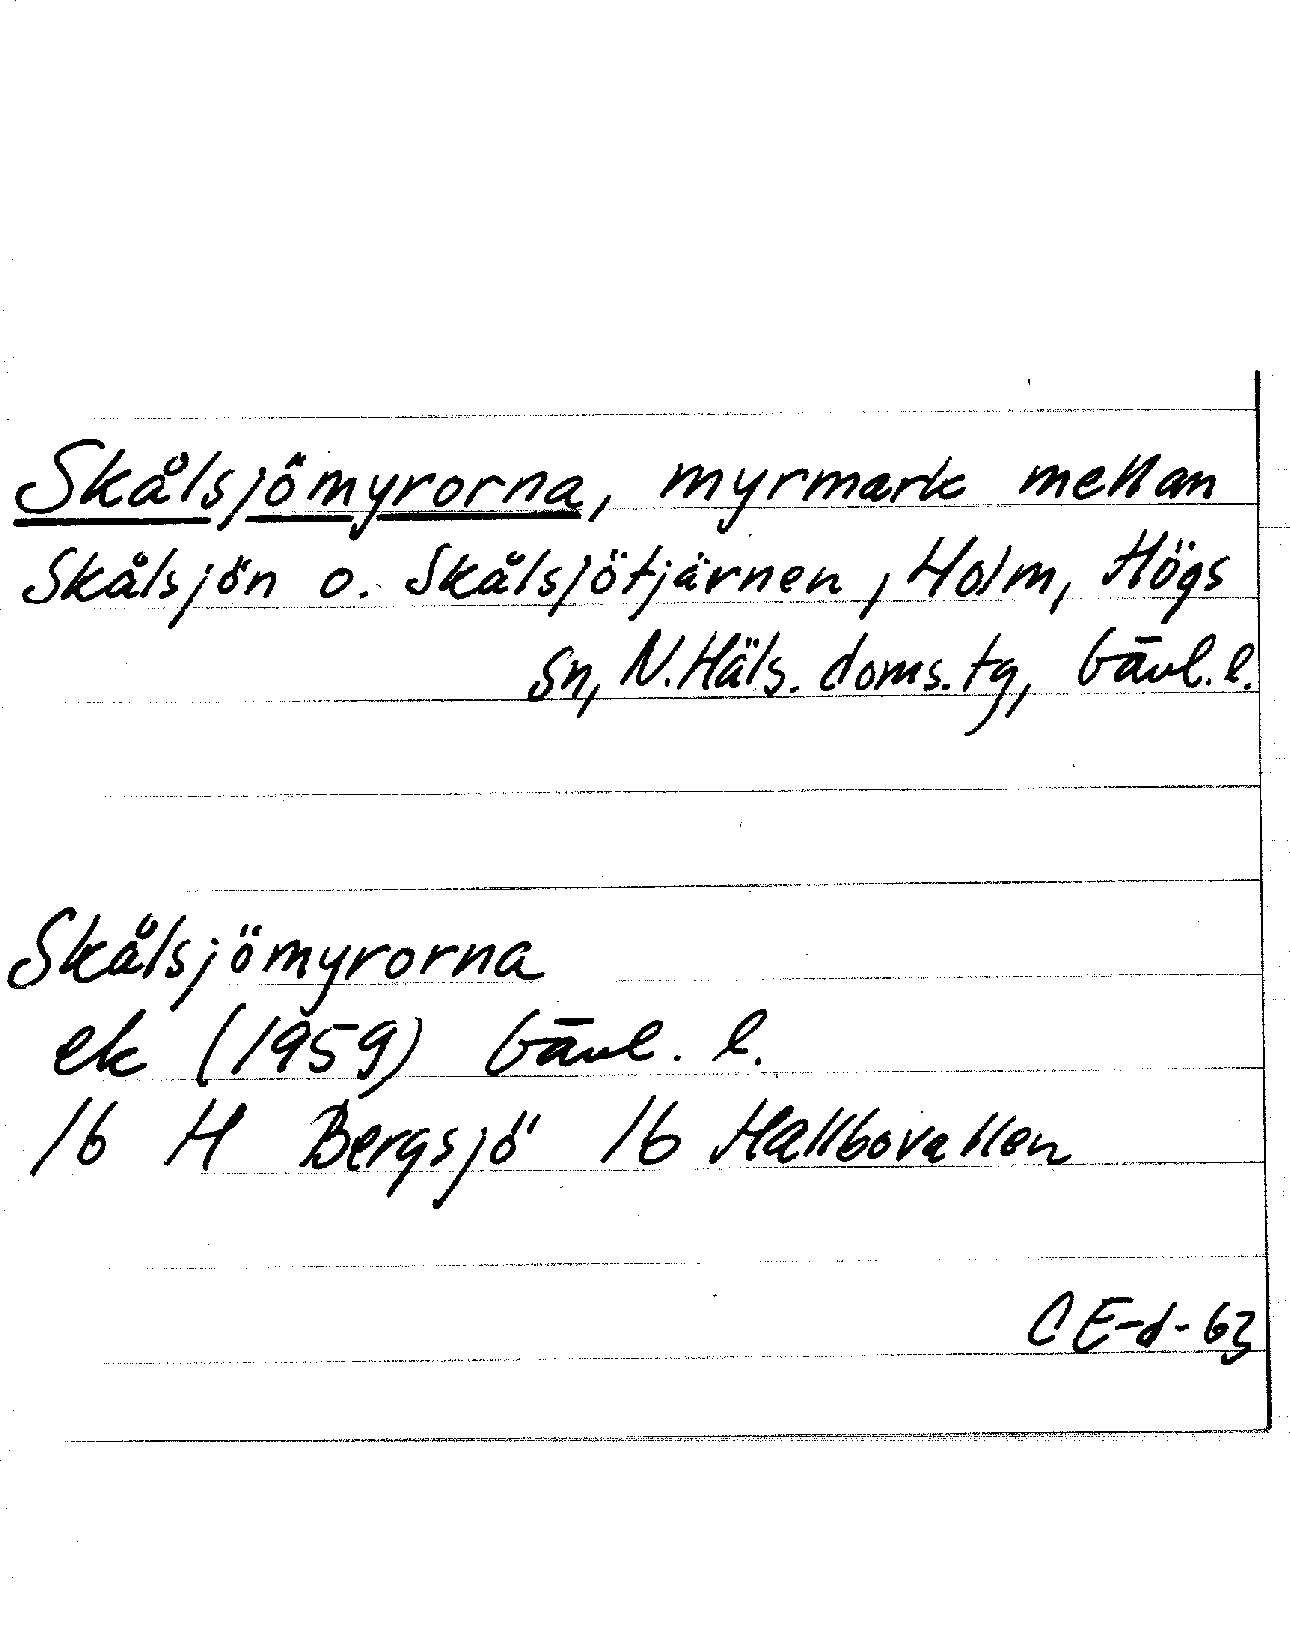 Skålsjömyrorna, myrmark mellan
Skålsjön o. Skålsjötjärnen, Holm, Högs
sn, N. Häls. doms. tg, Gävl. l.
Skålsjömyrorna
ek (1959) Gävl. l.
16 H Bergsjö 16 Hallbovallen
CE-d-63